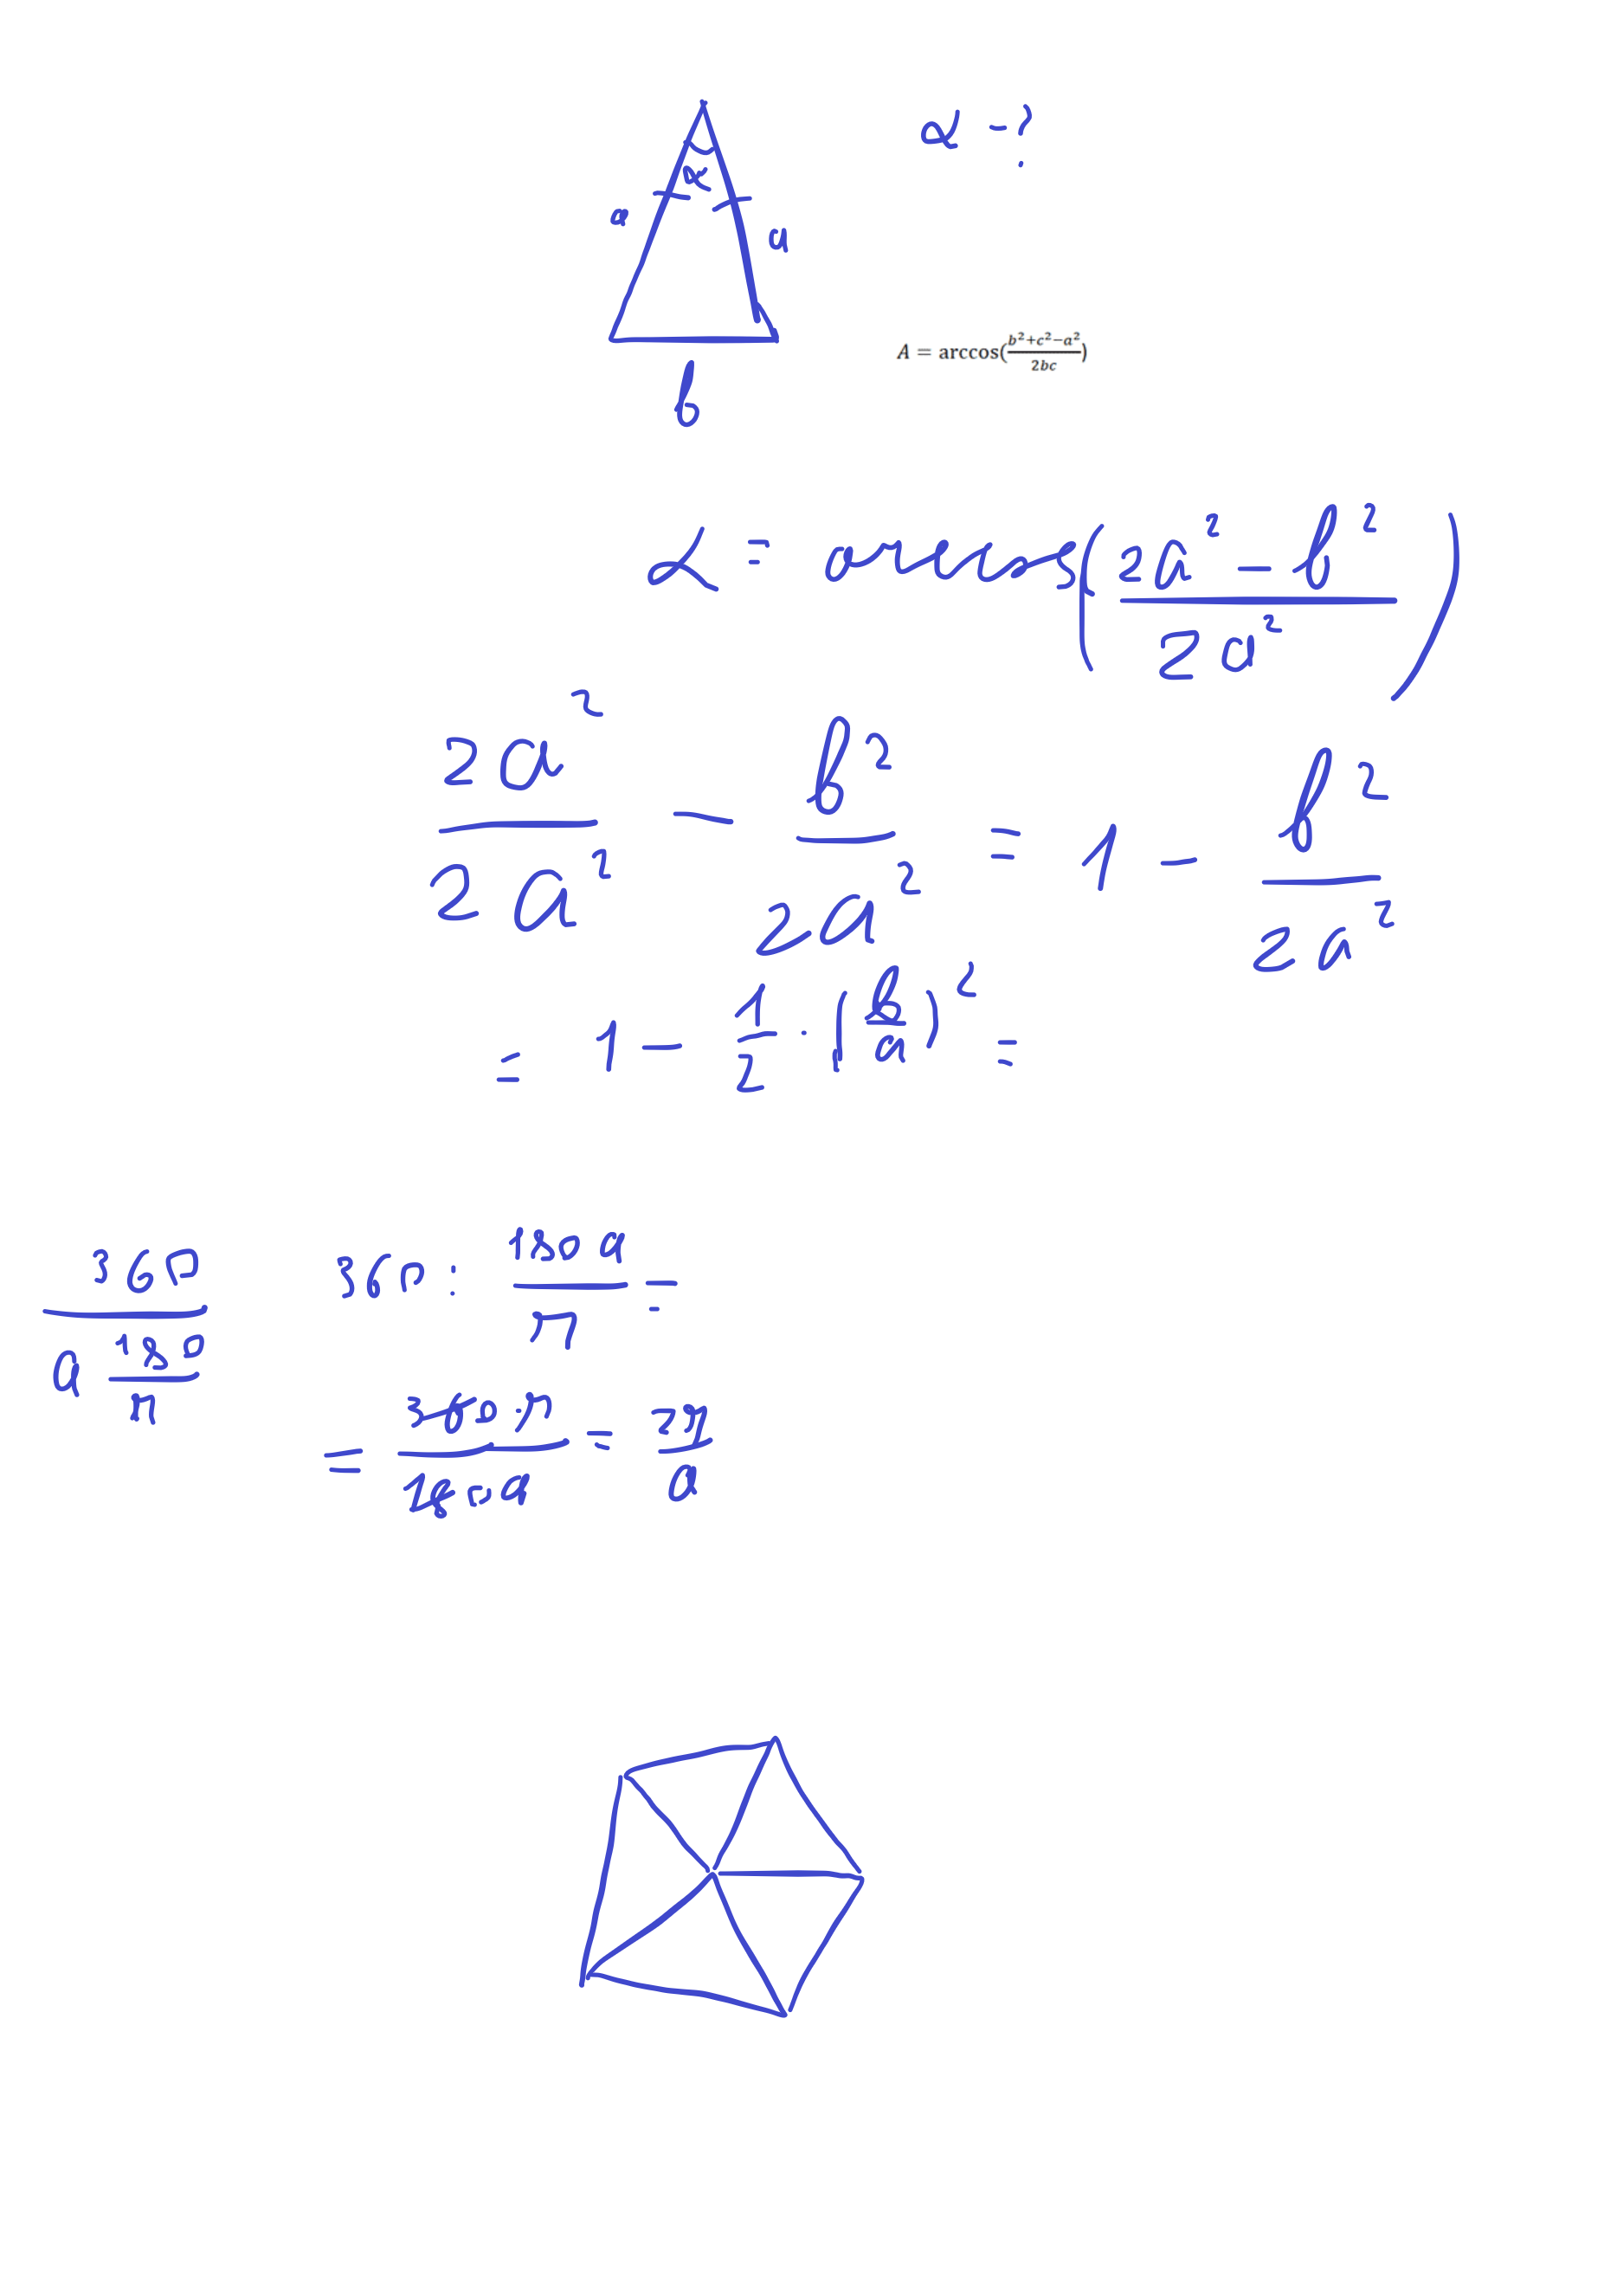 α - ?
α
a
a
b
A = arccos(\frac{b²+c²−a²}{2bc})
α = arccos(\frac{2a² - b²}{2a²})
\frac{2a²}{2a²} - \frac{b²}{2a²} = 1 - \frac{b²}{2a²}
= 1 - \frac{1}{2} · (\frac{b}{a})² =
\frac{360}{a \frac{180}{π}}
360 : \frac{180 a}{π} =
= \frac{360 · π}{180 · a} = \frac{2π}{a}